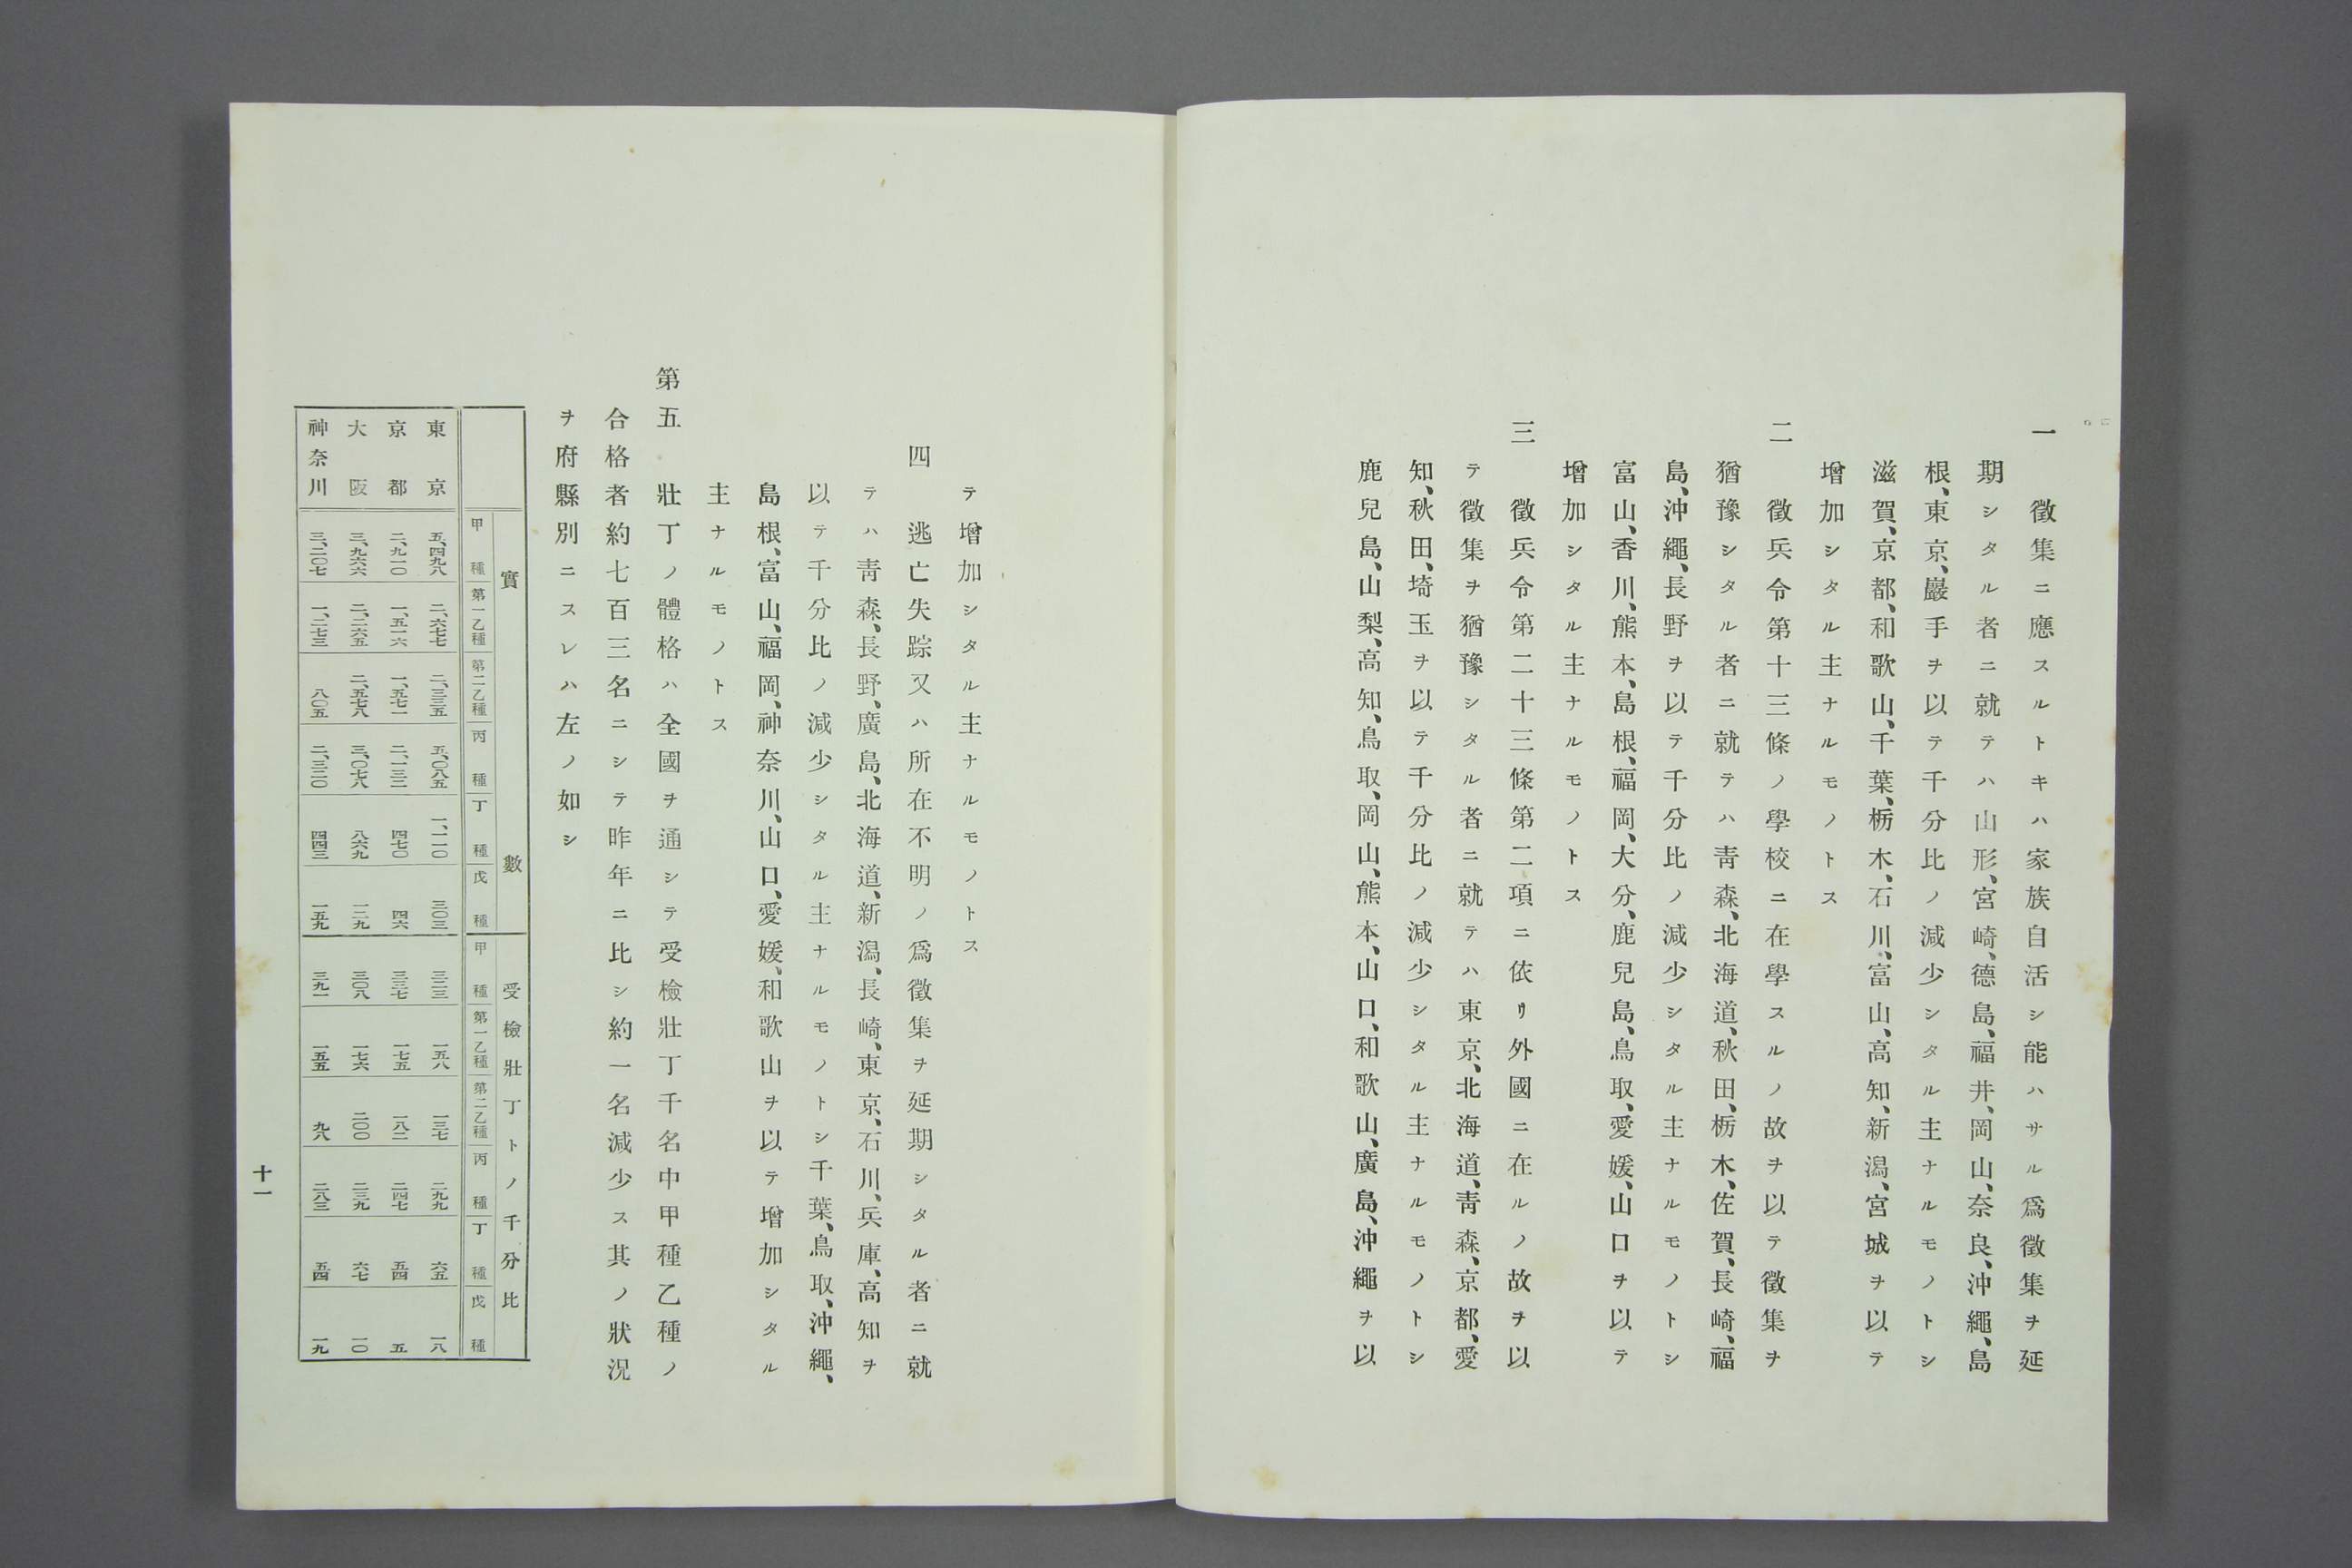 一　徵集ニ應スルトキハ家族自活シ能ハサル爲徵集ヲ延
期シタル者ニ就テハ山形、宮崎、德島、福井、岡山、奈良、沖繩、島
根、東京、巖手ヲ以テ千分比ノ減少シタル主ナルモノトシ
滋賀、京都、和歌山、千葉、栃木、石川、富山、高知、新潟、宮城ヲ以テ
增加シタル主ナルモノトス
二　徵兵令第十三條ノ學校ニ在學スルノ故ヲ以テ徵集ヲ
猶豫シタル者ニ就テハ靑森、北海道、秋田、栃木、佐賀、長崎、福
島、沖繩、長野ヲ以テ千分比ノ減少シタル主ナルモノトシ
富山、香川、熊本、島根、福岡、大分、鹿兒島、鳥取、愛媛、山口ヲ以テ
增加シタル主ナルモノトス
三　徵兵令第二十三條第二項ニ依リ外國ニ在ルノ故ヲ以
テ徵集ヲ猶豫シタル者ニ就テハ東京、北海道、靑森、京都、愛
知、秋田、埼玉ヲ以テ千分比ノ減少シタル主ナルモノトシ
鹿兒島、山梨、高知、鳥取、岡山、熊本、山口、和歌山、廣島、沖繩ヲ以
テ增加シタル主ナルモノトス
四　逃亡失踪又ハ所在不明ノ爲徵集ヲ延期シタル者ニ就
テハ靑森、長野、廣島、北海道、新潟、長崎、東京、石川、兵庫、高知ヲ
以テ千分比ノ減少シタル主ナルモノトシ千葉、鳥取、沖繩、
島根、富山、福岡、神奈川、山口、愛媛、和歌山ヲ以テ增加シタル
主ナルモノトス
第五　壯丁ノ體格ハ全國ヲ通シテ受檢壯丁千名中甲種乙種ノ
合格者約七百三名ニシテ昨年ニ比シ約一名減少ス其ノ狀況
ヲ府縣別ニスレハ左ノ如シ
實數　受檢壯丁トノ千分比
甲種　第一乙種　第二乙種　丙種　丁種　戊種　甲種　第一乙種　第二乙種　丙種　丁種　戊種
東京　五、四九八　二、六七七　二、三三五　五、〇八五　一、一一〇　三〇三　三二三　一五八　一三七　二九九　六五　一八
京都　二、九一〇　一、五一六　一、五七一　二、一三二　四七〇　四六　三三七　一七五　一八二　二四七　五四　五
大阪　三、九六六　二、二六五　二、五七八　三、〇七八　八六九　一二九　三〇八　一七六　二〇〇　二三九　六七　一〇
神奈川　三、二〇七　一、二七三　八〇五　二、三二〇　四四三　一五九　三九一　一五五　九八　二八三　五四　一九
十一